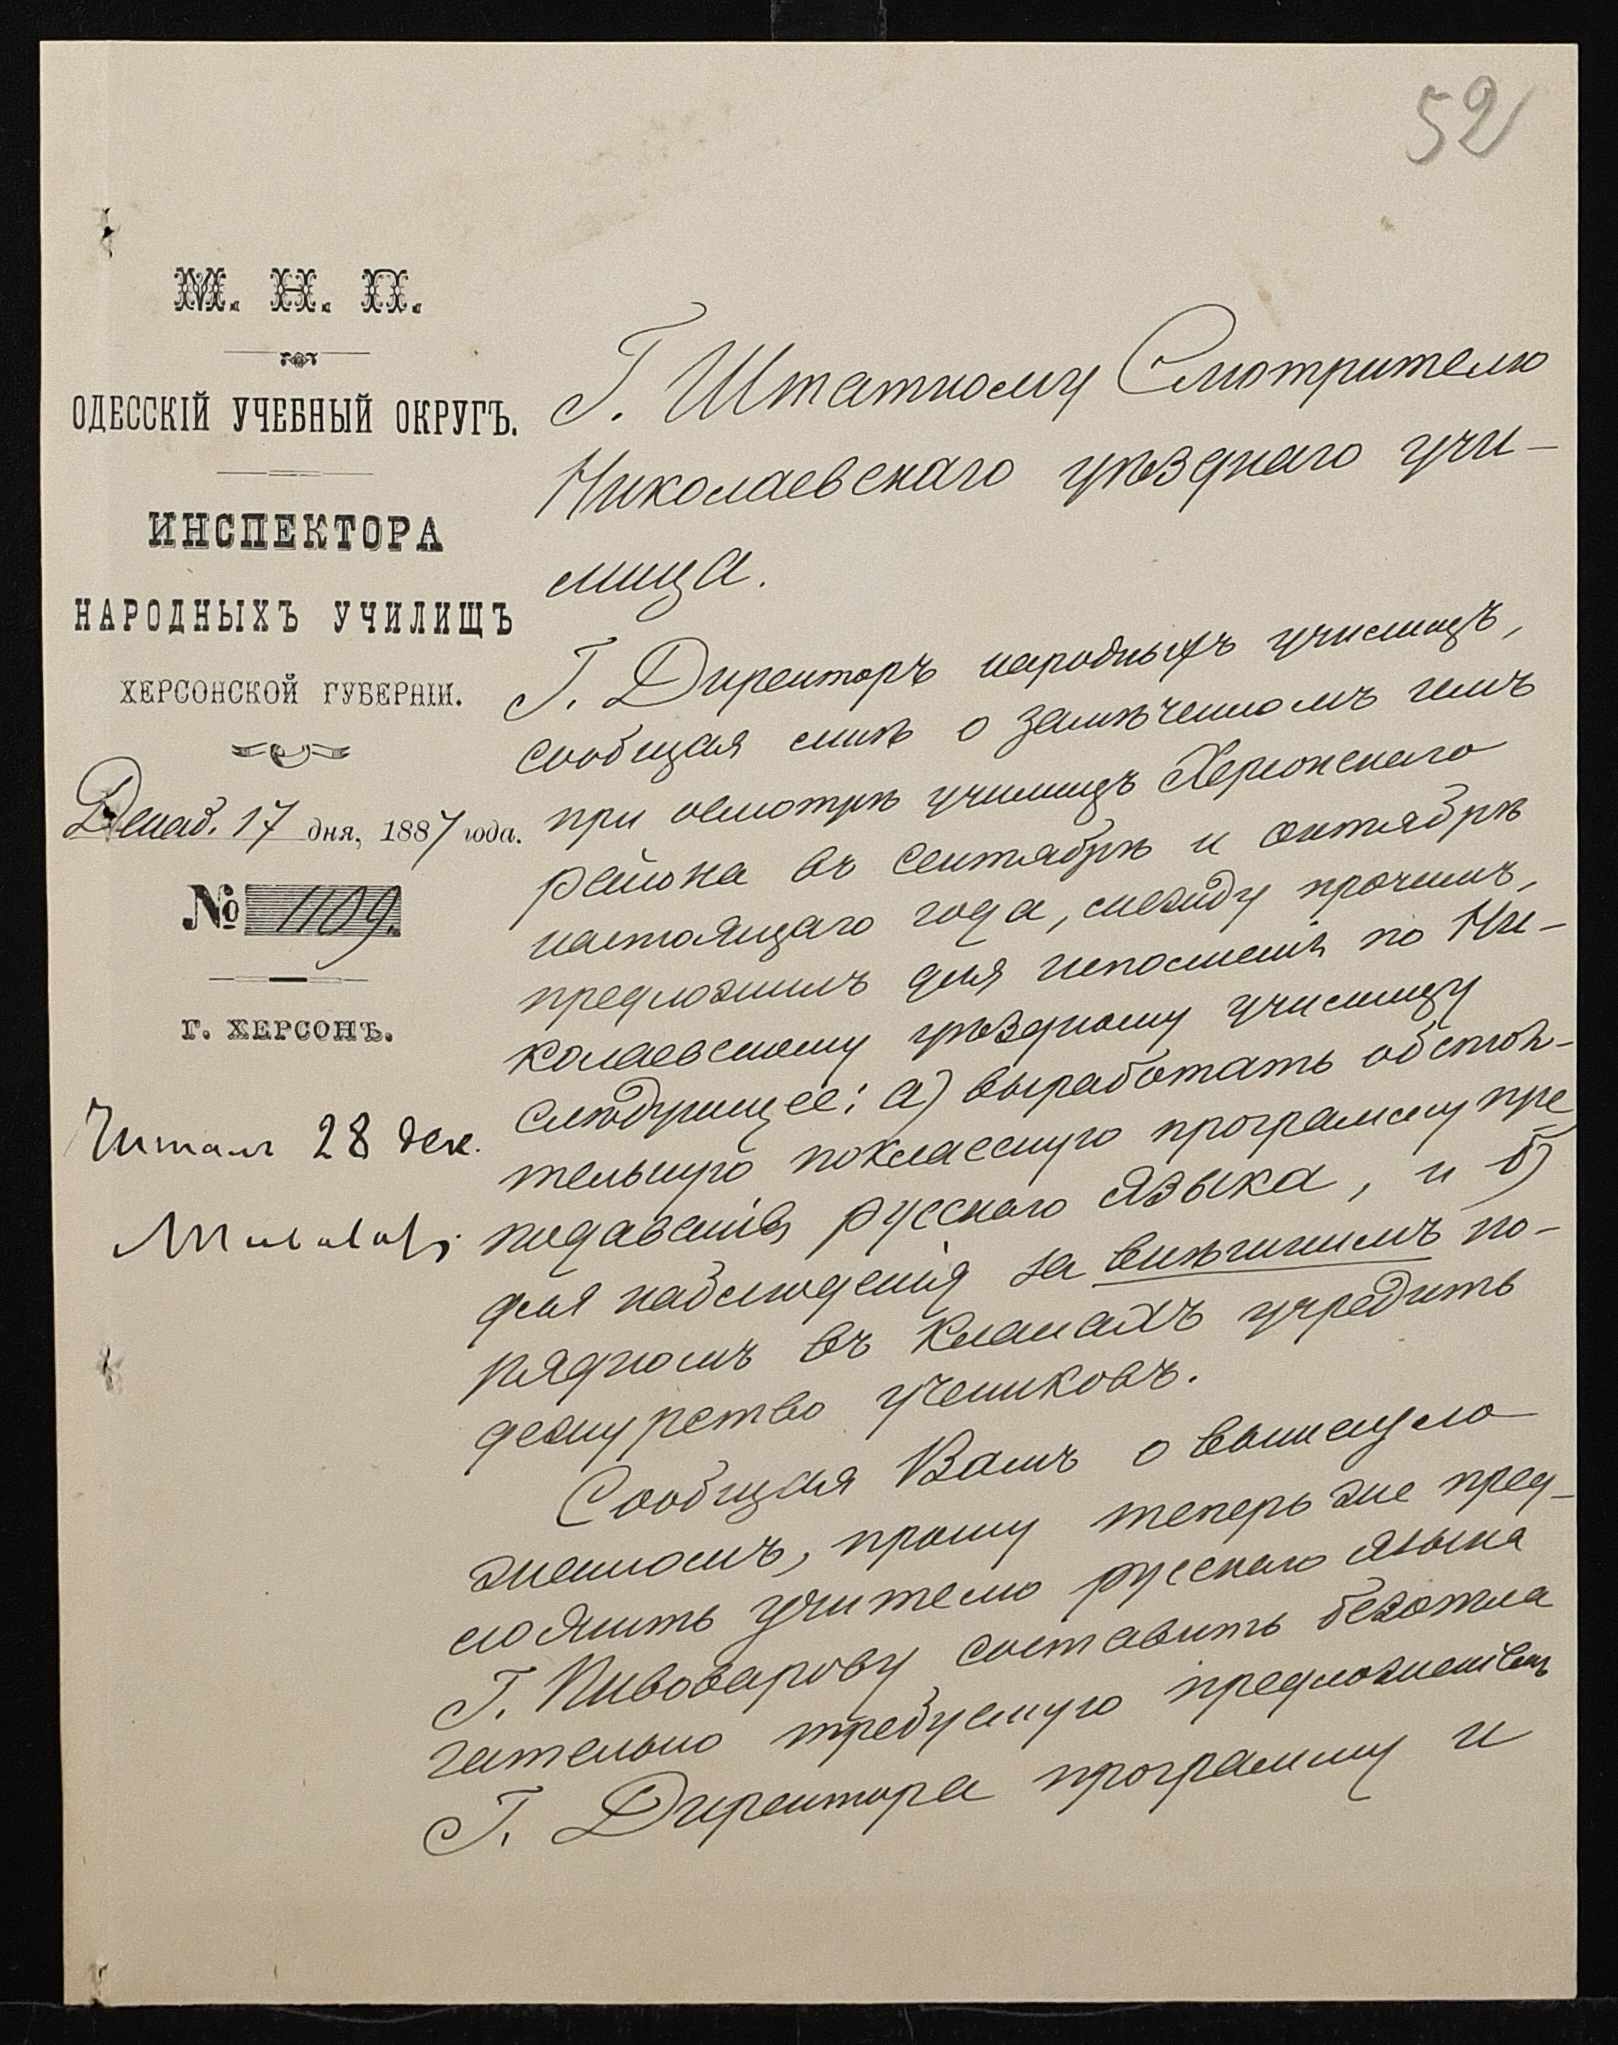 52
М. Н. П.
ОДЕССКІЙ УЧЕБНЫЙ ОКРУГЪ.
ИНСПЕКТОРА
НАРОДНЫХЪ УЧИЛИЩЪ
ХЕРСОНСКОЙ ГУБЕРНІИ.
Декаб. 17 дня, 1887 года.
№ 1109.
Г. ХЕРСОНЪ.
Читалъ 28 дек.
Г. Штатному Смотрителю
Николаевскаго уѣзднаго учи-
лища.
Г. Директоръ народныхъ училищъ,
сообщая мнѣ о замѣченномъ имъ
при осмотрѣ училищъ Херсонскаго
района въ сентябрѣ и октябрѣ
настоящаго года, между прочимъ,
предложилъ для исполненія по Ни-
колаевскому уѣздному училищу
слѣдующее: а) выработать обстоя-
тельную поклассную программу пре
подаванія русскаго языка, и б)
для наблюденія за внѣшнимъ по-
рядкомъ въ классахъ учредить
дежурство учениковъ.
Сообщая Вамъ о вышеизло
женномъ, прошу теперь же пред-
ложить учителю русскаго языка
Г. Пивоварову составить безотла
гательно требуемую предложеніемъ
Г. Директора программу и